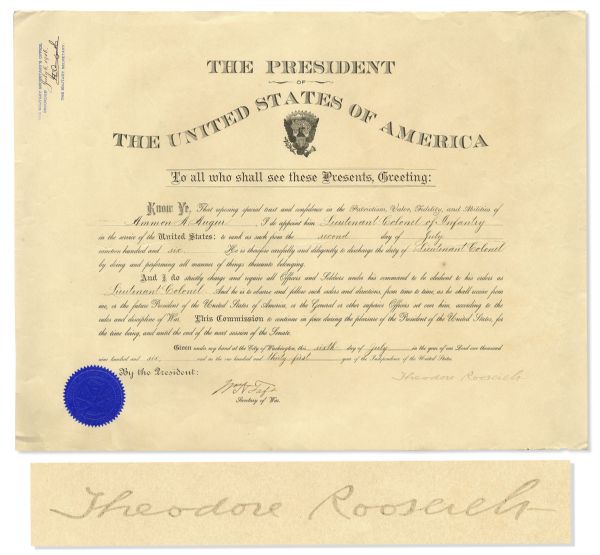 THE PRESIDENT
OF
THE UNITED STATES OF AMERICA
To all who shall see these Presents, Greeting:
Know Ye, That reposing special trust and confidence in the Patriotism, Valor, Fidelity, and Abilities of
Ammon A. Augur I do appoint him Lieutenant Colonel of Infantry
in the service of the United States: to rank as such from the second day of July
nineteen hundred and six. He is therefore carefully and diligently to discharge the duty of Lieutenant Colonel
by doing and performing all manner of things thereunto belonging.
And I do strictly charge and require all Officers and Soldiers under his command to be obedient to his orders as
Lieutenant Colonel. And he is to observe and follow such orders and directions, from time to time, as he shall receive from
me, or the future President of the United States of America, or the General or other superior Officers set over him, according to the
rules and discipline of War. This Commission to continue in force during the pleasure of the President of the United States, for
the time being, and until the end of the next session of the Senate.
Given under my hand at the City of Washington, this sixth day of July in the year of our Lord one thousand
nine hundred and six, and in the one hundred and thirty-first year of the Independence of the United States.
By the President:
Theodore Roosevelt
Wm H Taft
Secretary of War.
Theodore Roosevelt